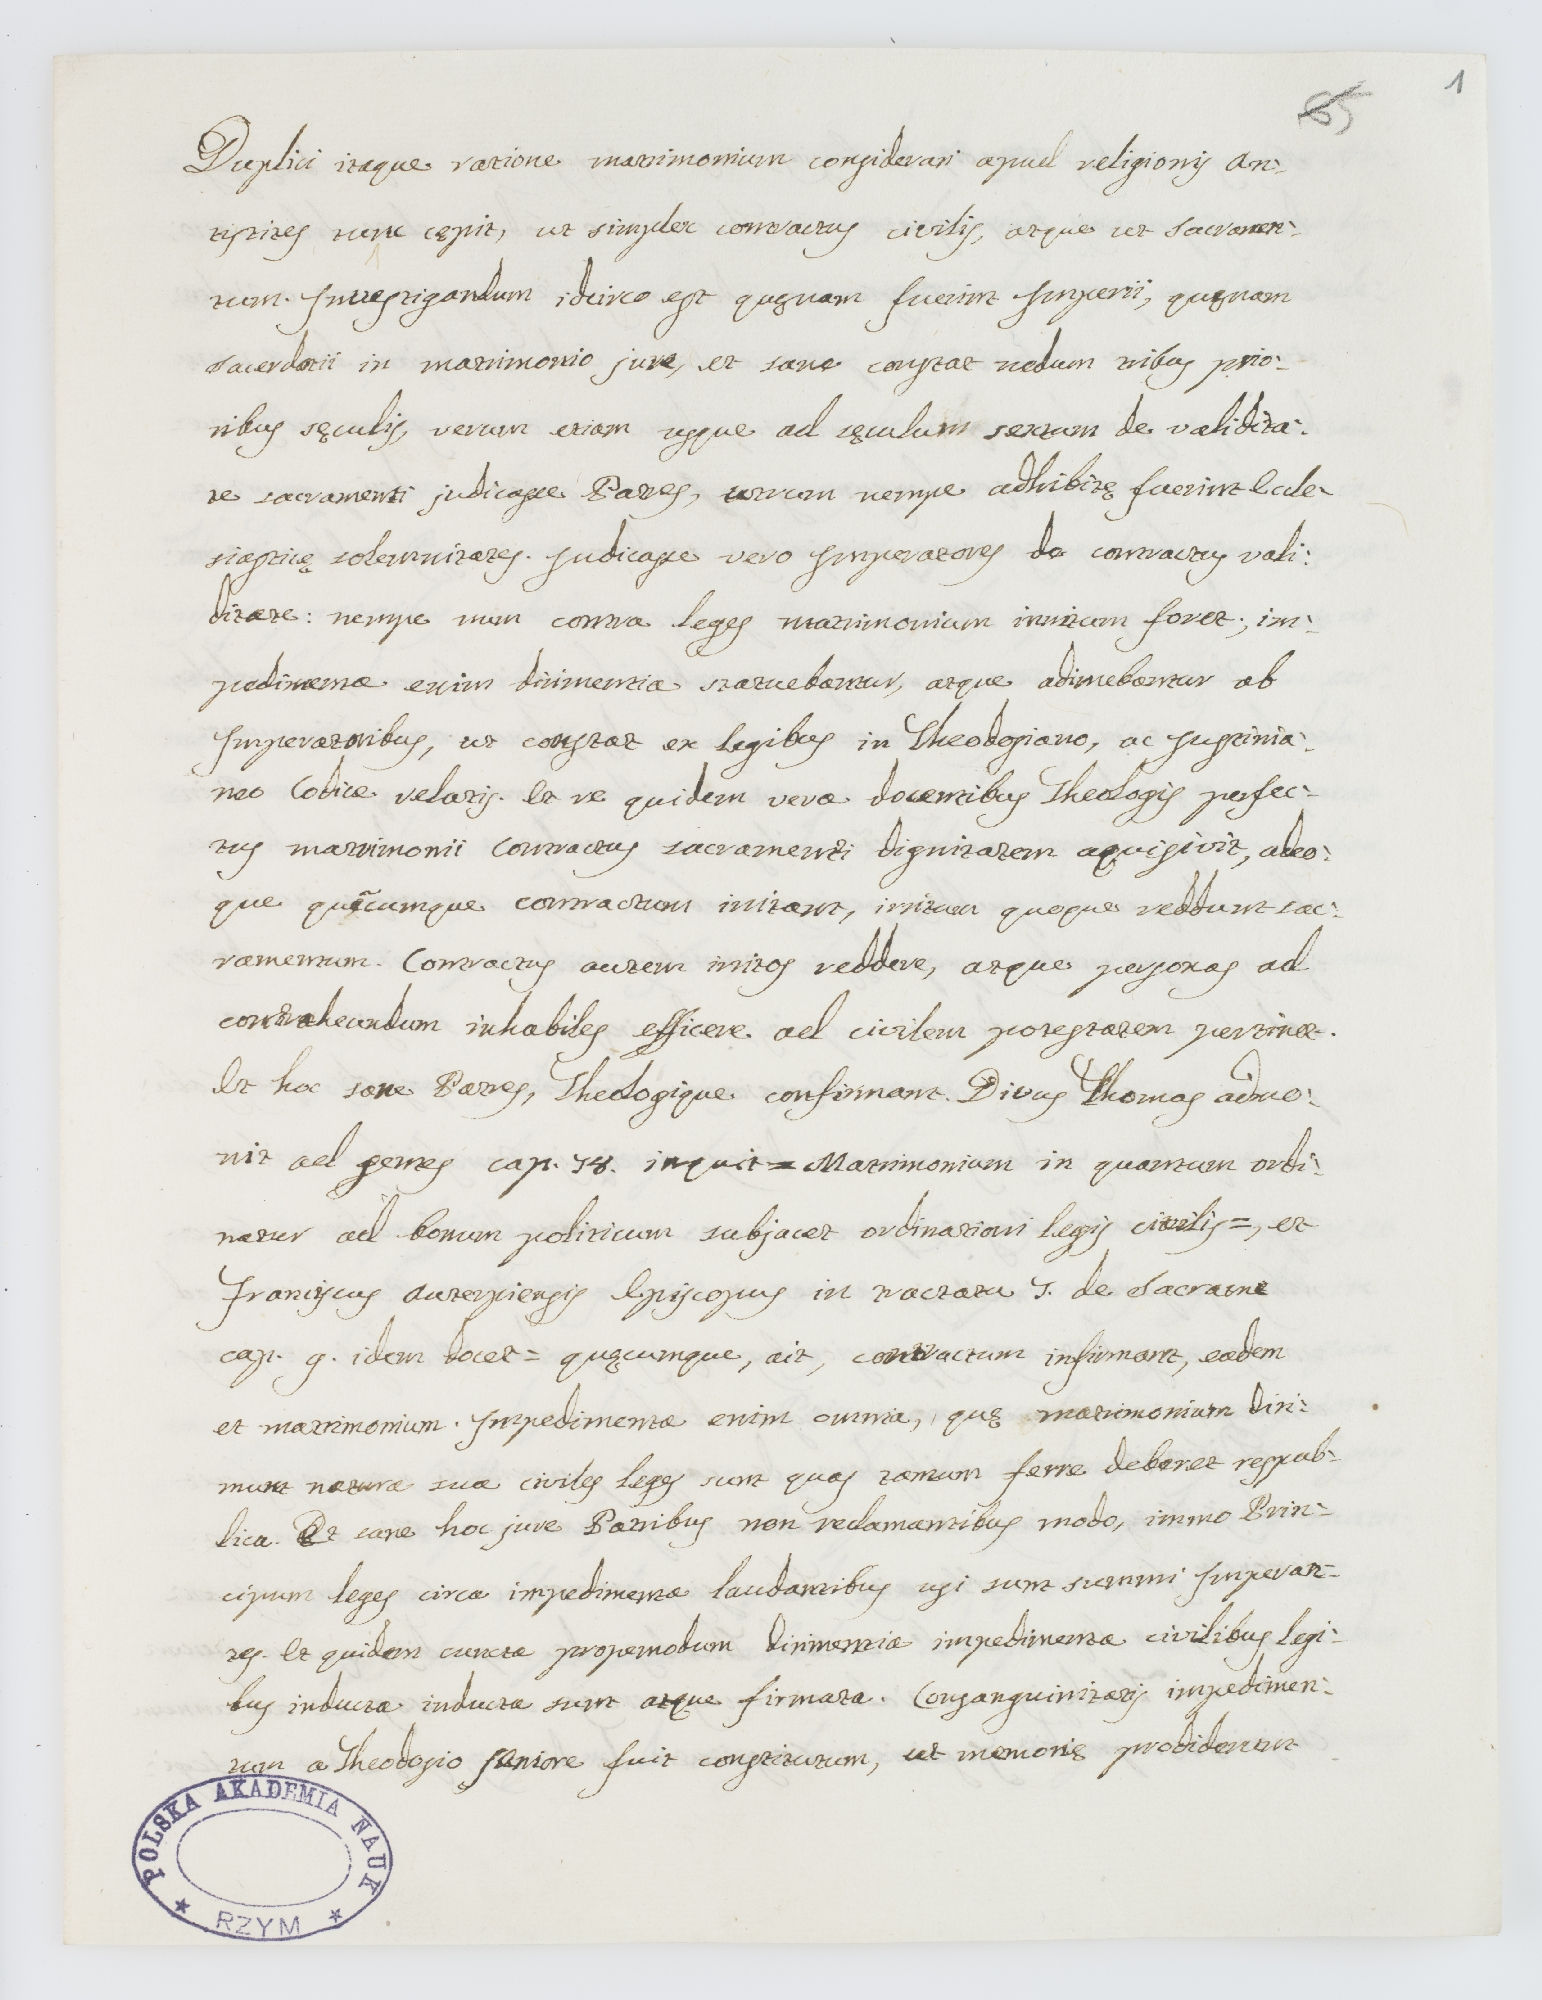 1
65
Duplici itaque ratione matrimonium considerari apud religionis An-
tistites tunc cępit, ut simplex contractus civilis, atque ut Sacramen-
tum. Investigandum idcirco est quęnam fuerint Imperii, quęnam
Sacerdotii in matrimonio jura, et sane constat nedum tribus prio-
ribus sęculis, verum etiam usque ad sęculum sextum de validita-
te sacramenti judicasse Patres, utrum nempe adhibitę fuerint Eccle-
siasticę solemnitates. Judicasse vero Imperatores de contractus vali-
ditate: nempe num contra leges matrimonium initum foret; im-
pedimenta enim dirimentia statuebantur, atque adimebantur ab
Imperatoribus, ut constat ex legibus in Theodosiano, ac Justinia-
neo Codice relatis. Et re quidem vera docentibus Theologis perfec-
tus matrimonii contractus sacramenti dignitatem aquisivit, adeo-
que quæcumque contractum irritant, irritum quoque reddunt sac-
ramentum. Contractus autem irritos reddere, atque personas ad
contrahendum inhabiles efficere ad civilem potestatem pertinet.
Et hoc sane Patres, Theologique confirmant. Divus Thomas adve-
nit ad gentes cap. 78. inquit = Matrimonium in quantum ordi-
natur ad bonum politicum subjacet ordinationi legis civilis =, et
Franciscus Auterpiensis Episcopus in tractatu 7. de Sacrame
cap. 9. idem docet = quęcumque, ait, contractum infirmant, eadem
et matrimonium. Impedimenta enim omnia, quę matrimonium diri-
munt natura sua civiles leges sunt quas tantum ferre deberet respub-
lica. Et sane hoc jure Patribus non reclamantibus modo, immo Prin-
cipum leges circa impedimenta laudantibus usi sunt summi Imperan-
tes. Et quidem cuncta propemodum dirimentia impedimenta civilibus legi-
bus inducta inducta sunt atque firmata. Consanguinitatis impedimen-
tum a Theodosio Juniore fuit constitutum, ut memorię prodiderunt
POLSKA AKADEMIA NAUK
RZYM